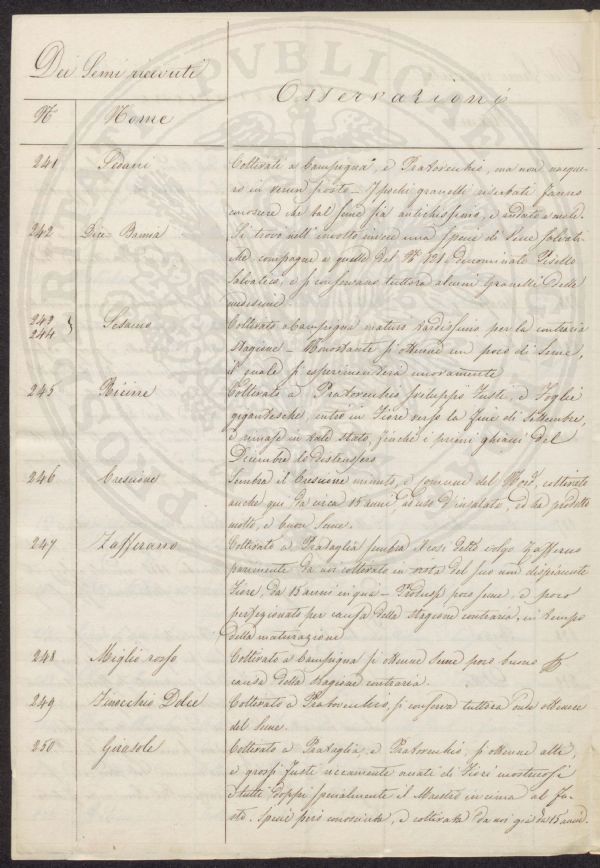 Dei Semi ricevuti
Osservazioni
N.º Nome
241 Sedani Coltivati a Campigna, e Pratovecchio, ma non nacque-
ro in verun posto – I pochi granelli riservati fanno
conoscere che tal seme sia antichissimo, e andato a male.
242 Si trovò nell'involto invece una specie di Seme salvati-
che compagne a quelle del N.º 121 denominate Pisello
Salvatico, e si conservano tuttora alcuni granelli delle
medesime
243
244 } Sesamo Coltivato a Campigna maturò tardissimo per la contraria
stagione – Nonostante si ottenne un poco di Seme,
il quale si esperimenterà nuovamente
245 Ricine Coltivato a Pratovecchio sviluppò Fusti, e Foglie
gigantesche, entrò in Fiore verso la fine di Settembre,
e rimase in tale stato, finchè i primi ghiacci del
Dicembre lo distrussero
246 Crescione Sembra il Crescione minuto, e comune del Nord, coltivato
anche qui da circa 15 anni ad uso d'insalata, ed ha prodotto
molto, e buon Seme.
247 Zafferano Coltivato a Prataglia sembra il così detto volgo Zafferus
parimente da noi coltivato in vista del suo non dispiacente
Fiore, da 15 anni in qua – Produsse poco seme, e poco
perfezionato per causa della stagione contraria, in tempo
della maturazione
248 Miglio rosso Coltivato a Campigna si ottenne Seme poco buono a
causa della stagione contraria.
249 Finocchio Dolce Coltivato a Pratovecchio, si conserva tuttora onde ottenere
del Seme.
250 Girasole Coltivato a Prataglia, e Pratovecchio si ottenne alti,
e grossi Fusti riccamente ornati di Fiori mostruosi
e tutti doppi specialmente il Maestro in cima al Fu-
sto. Specie però conosciuta, e coltivata da noi già da 15 anni.
PVBLICAE